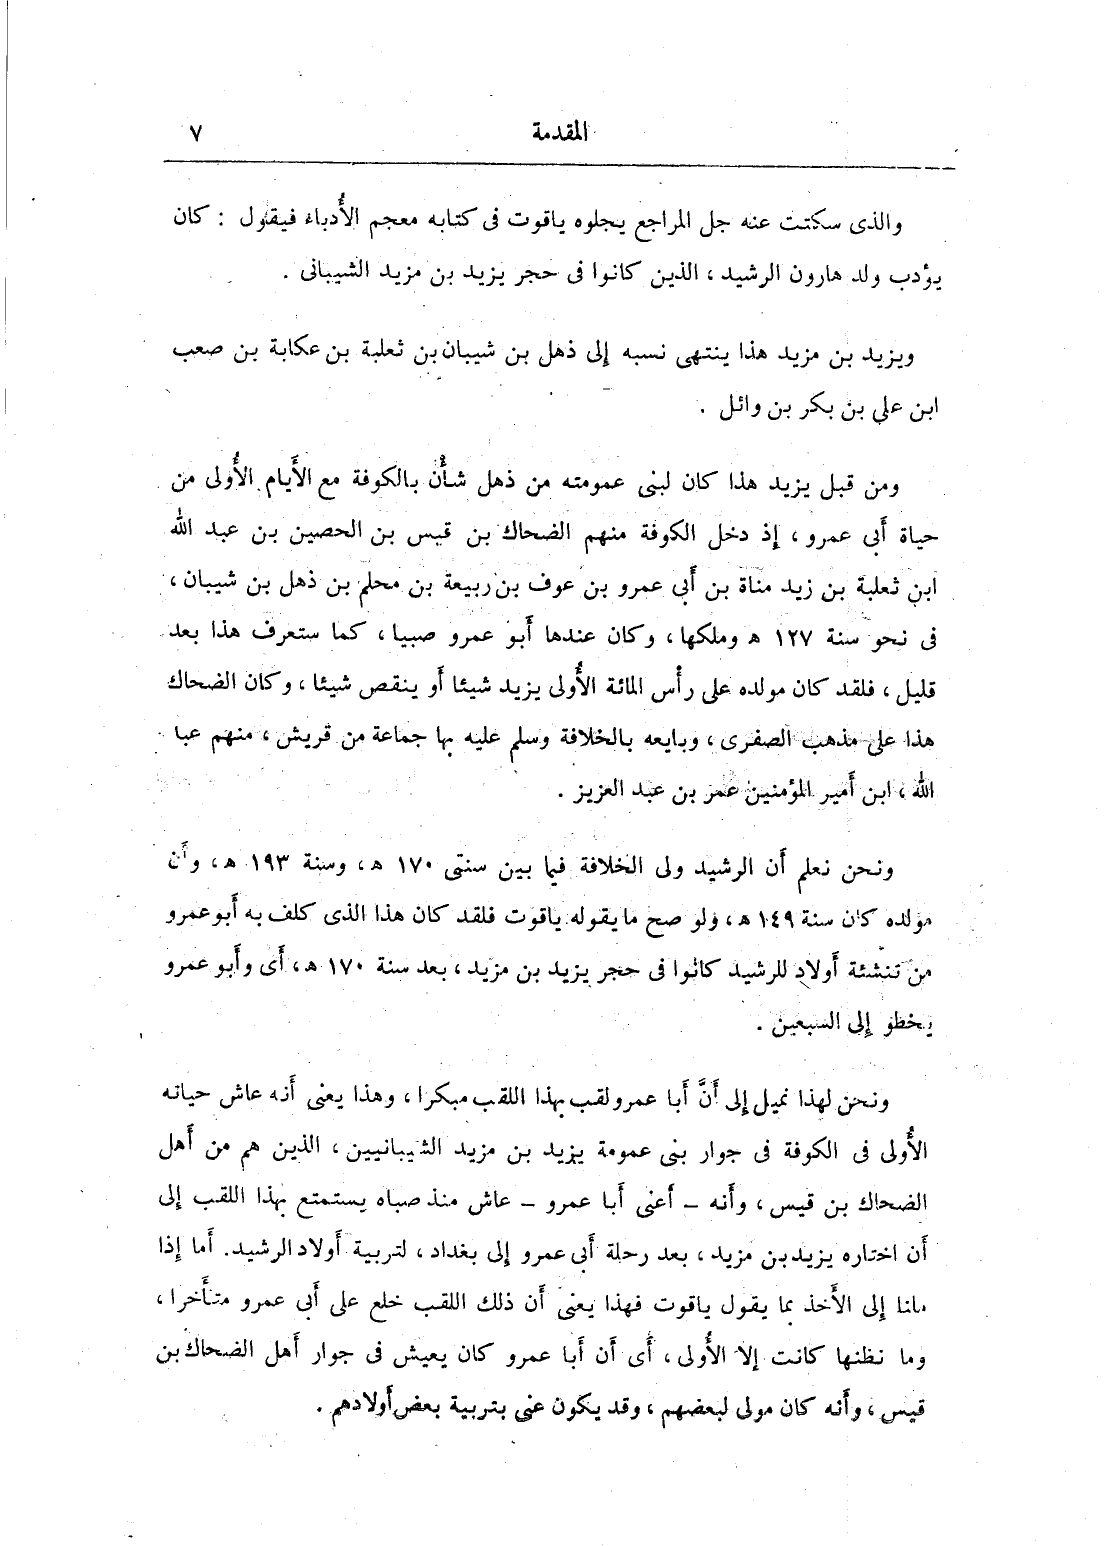 المقدمة ٧
والذى سكتت عنه جل المراجع يجلوه ياقوت فى كتابه معجم الأُدباء فيقول : كان
يؤدب ولد هارون الرشيد ، الذين كانوا فى حجر يزيد بن مزيد الشيبانى .
ويزيد بن مزيد هذا ينتهى نسبه إلى ذهل بن شيبان بن ثعلبة بن عكابة بن صعب
ابن على بن بكر بن وائل .
ومن قبل يزيد هذا كان لبنى عمومته من ذهل شأْن بالكوفة مع الأَيام الأُولى من
حياة أَبى عمرو ، إِذ دخل الكوفة منهم الضحاك بن قيس بن الحصين بن عبد الله
ابن ثعلبة بن زيد مناة بن أَبى عمرو بن عوف بن ربيعة بن محلم بن ذهل بن شيبان ،
فى نحو سنة ١٢٧ ه وملكها ، وكان عندها أَبو عمرو صبيا ، كما ستعرف هذا بعد
قليل ، فلقد كان مولده على رأْس المائة الأُولى يزيد شيئا أَو ينقص شيئا ، وكان الضحاك
هذا على مذهب الصفرى ، وبايعه بالخلافة وسلم عليه بها جماعة من قريش ، منهم عبا
الله ، ابن أَمير المؤمنين عمر بن عبد العزيز .
ونحن نعلم أَن الرشيد ولى الخلافة فيما بين سنتى ١٧٠ ه ، وسنة ١٩٣ ه ، وأَن
مولده كان سنة ١٤٩ ه ، ولو صح ما يقوله ياقوت فلقد كان هذا الذى كلف به أَبو عمرو
من تنشئة أَولاد للرشيد كانوا فى حجر يزيد بن مزيد ، بعد سنة ١٧٠ ه ، أَى وأَبو عمرو
يخطو إِلى السبعين .
ونحن لهذا نميل إِلى أَنَّ أَبا عمرو لقب بهذا اللقب مبكرا ، وهذا يعنى أَنه عاش حياته
الأُولى فى الكوفة فى جوار بنى عمومة يزيد بن مزيد الشيبانيين ، الذين هم من أَهل
الضحاك بن قيس ، وأَنه – أَعنى أَبا عمرو – عاش منذ صباه يستمتع بهذا اللقب إِلى
أَن اختاره يزيد بن مزيد ، بعد رحلة أَبى عمرو إِلى بغداد ، لتربية أَولاد الرشيد. أَما إِذا
ملنا إِلى الأَخذ بما يقول ياقوت فهذا يعنى أَن ذلك اللقب خلع على أَبى عمرو متأَخرا ،
وما نظنها كانت إِلا الأُولى ، أَى أَن أَبا عمرو كان يعيش فى جوار أَهل الضحاك بن
قيس ، وأَنه كان مولى لبعضهم ، وقد يكون عنى بتربية بعض أَولادهم .